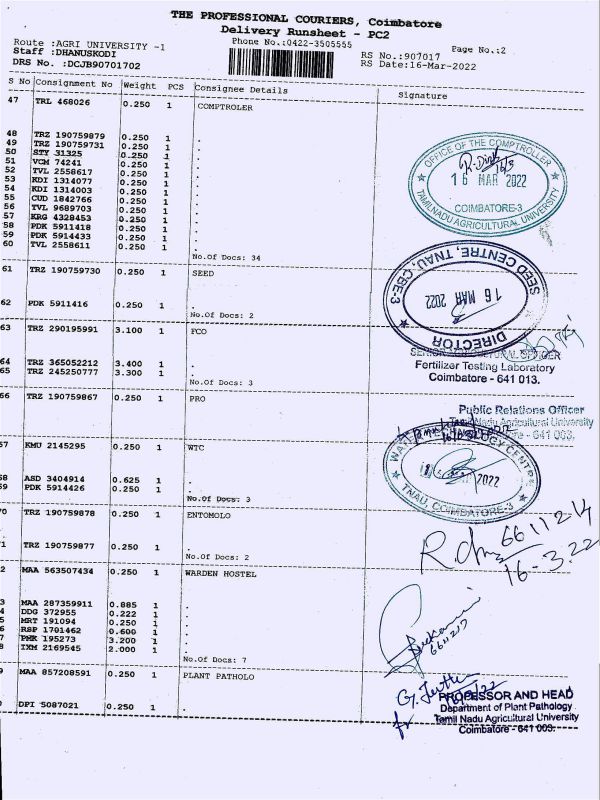 THE PROFESSIONAL COURIERS, Coimbatore
Delivery Runsheet - PC2
Route :AGRI UNIVERSITY -1 Phone No.:0422-3505555 Page No.:2
Staff :DHANUSKODI RS No.:907017
DRS No. :DCJB90701702 RS Date:16-Mar-2022
S No Consignment No Weight PCS Consignee Details Signature
47 TRL 468026 0.250 1 COMPTROLER
48 TRZ 190759879 0.250 1 .
49 TRZ 190759731 0.250 1 .
50 STY 31325 0.250 1 .
51 VCM 74241 0.250 1 .
52 TVL 2558617 0.250 1 .
53 KDI 1314077 0.250 1 .
54 KDI 1314003 0.250 1 .
55 CUD 1842766 0.250 1 .
56 TVL 9689703 0.250 1 .
57 KRG 4328453 0.250 1 .
58 PDK 5911418 0.250 1 .
59 PDK 5914433 0.250 1 .
60 TVL 2558611 0.250 1 .
No.Of Docs: 34
OFFICE OF THE COMPTROLLER
16 MAR 2022
COIMBATORE-3
TAMILNADU AGRICULTURAL UNIVERSITY
61 TRZ 190759730 0.250 1 SEED
62 PDK 5911416 0.250 1 .
No.Of Docs: 2
SEED CENTRE, TNAU, CBE-3
16 MAR 2022
DIRECTOR
63 TRZ 290195991 3.100 1 FCO
64 TRZ 365052212 3.400 1 .
65 TRZ 245250777 3.300 1 .
No.Of Docs: 3
Fertilizer Testing Laboratory
Coimbatore - 641 013.
66 TRZ 190759867 0.250 1 PRO
Public Relations Officer
Tamil Nadu Agricultural University
- 641 003.
57 KMU 2145295 0.250 1 WTC
58 ASD 3404914 0.625 1 .
59 PDK 5914426 0.250 1 .
No.Of Docs: 3
WATER TECHNOLOGY CENTRE
2022
TNAU, COIMBATORE-3
70 TRZ 190759878 0.250 1 ENTOMOLO
1 TRZ 190759877 0.250 1 .
No.Of Docs: 2
6611214
16-3.22
2 MAA 563507434 0.250 1 WARDEN HOSTEL
3 MAA 287359911 0.885 1 .
4 DDG 372955 0.222 1 .
5 MRT 191094 0.250 1 .
6 RSP 1701462 0.600 1 .
7 PMK 195273 3.200 1 .
8 IXM 2169545 2.000 1 .
No.Of Docs: 7
9 MAA 857208591 0.250 1 PLANT PATHOLO
0 DPI 5087021 0.250 1 .
PROFESSOR AND HEAD
Department of Plant Pathology
Tamil Nadu Agricultural University
Coimbatore - 641 003.